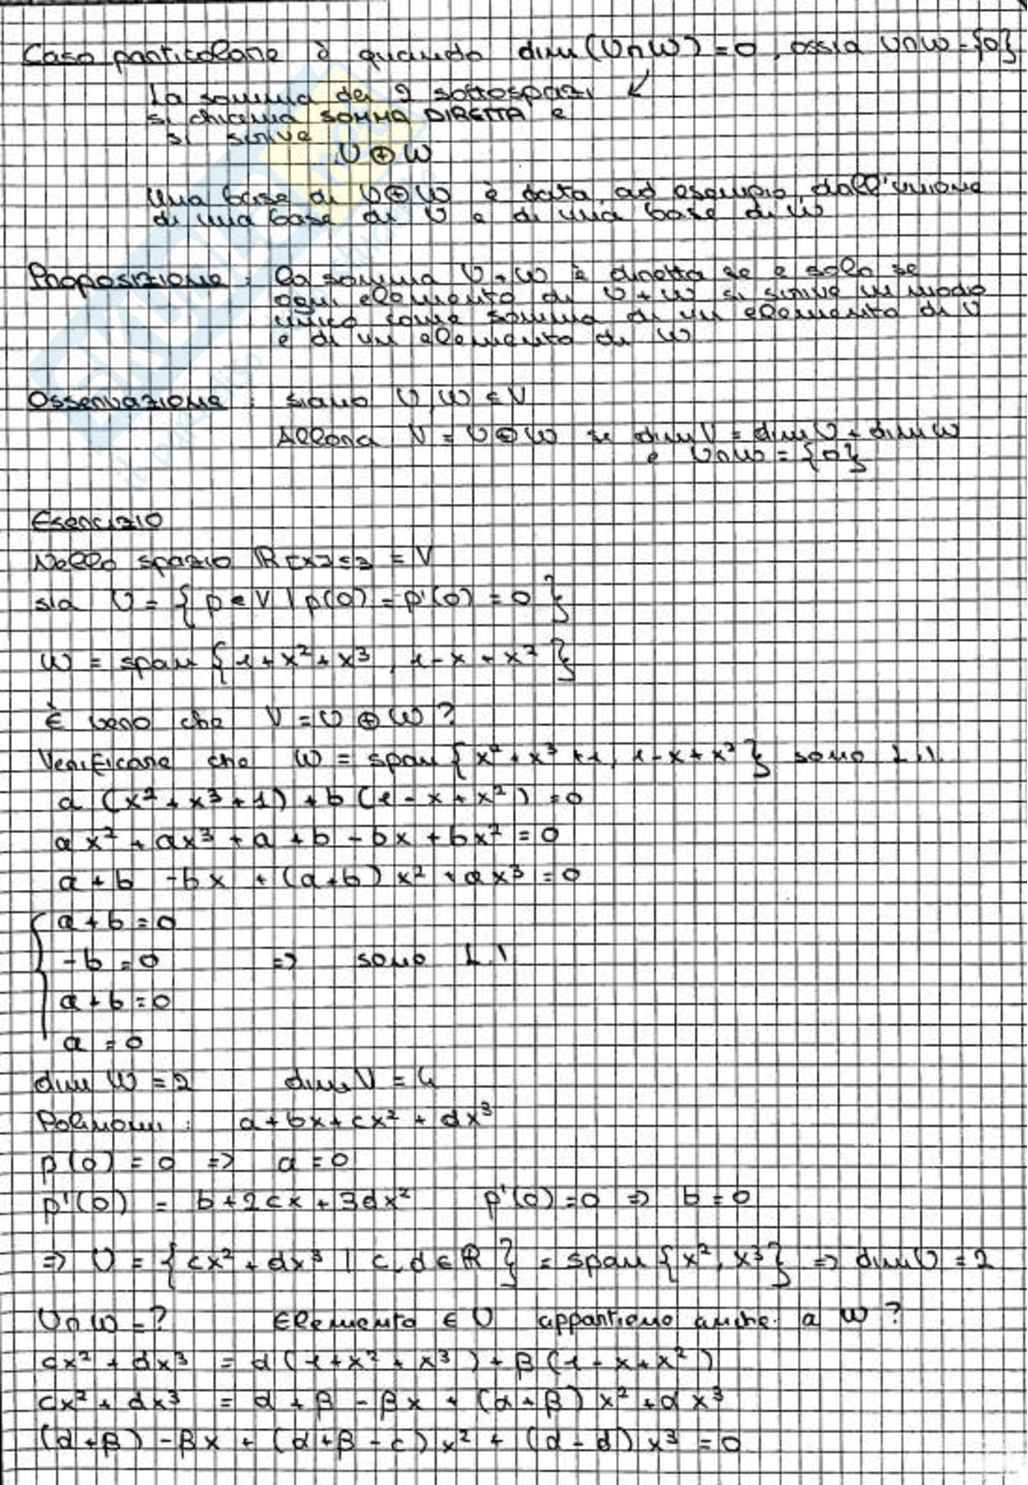 Caso particolare è quando dim(U∩W)=0, ossia U∩W={0}
la somma dei 2 sottospazi ↙
si chiama SOMMA DIRETTA e
si scrive
U⊕W
Una base di U⊕W è data, ad esempio, dall'unione
di una base di U e di una base di W
Proposizione : la somma U+W è diretta se e solo se
ogni elemento di U+W si scrive in modo
unico come somma di un elemento di U
e di un elemento di W
Osservazione : siano U,W ⊆ V
Allora V = U⊕W se dim V = dim U + dim W
e U∩W = {0}
Esercizio
Nello spazio ℝ[x]≤3 = V
sia U = { p ∈ V | p(0) = p'(0) = 0 }
W = span {1+x²+x³, 1-x+x²}
È vero che V = U ⊕ W ?
Verificare che W = span {x²+x³+1, 1-x+x²} sono L.I.
a (x²+x³+1) + b (1-x+x²) = 0
ax² + ax³ + a + b - bx + bx² = 0
a+b -bx + (a+b) x² + ax³ = 0
a+b=0
-b=0 => sono L.I
a+b=0
a=0
dim W = 2 dim V = 4
Polinomi : a+bx+cx²+dx³
p(0) = 0 => a=0
p'(0) = b+2cx+3dx² p'(0)=0 => b=0
=> U = {cx²+dx³ | c,d∈ℝ} = span {x², x³} => dim U = 2
U∩W=? Elemento ∈ U appartiene anche a W ?
cx²+dx³ = α(1+x²+x³) + β(1-x+x²)
cx²+dx³ = α+β-βx + (α+β) x² + αx³
(α+β) -βx + (α+β-c) x² + (α-d) x³ = 0